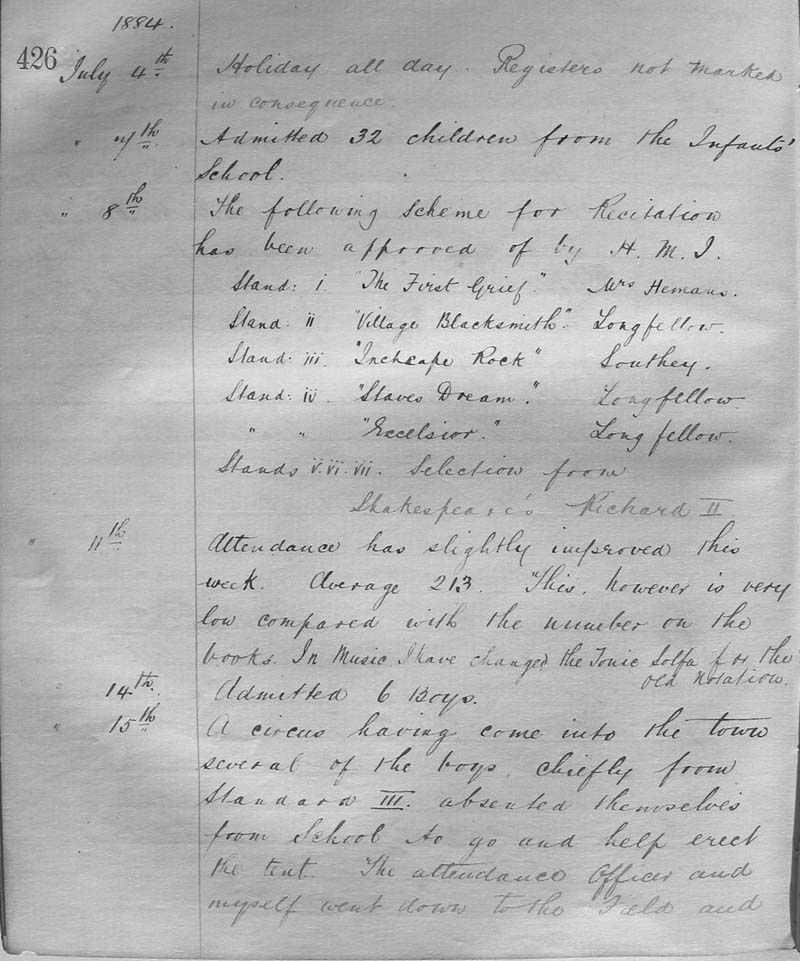 1884.
426
July 4th. Holiday all day. Registers not marked
in consequence.
" 7th. Admitted 32 children from the Infants'
School.
" 8th The following Scheme for Recitation
has been approved of by H. M. I.
Stand: i. "The First Grief." Mrs Hemans.
Stand: ii "Village Blacksmith". Longfellow.
Stand: iii. "Inchcape Rock" Southey.
Stand: iv. "Slaves Dream." Longfellow.
" " "Excelsior." Longfellow.
Stands v. vi. vii. Selection from
Shakespeare's Richard II.
" 11th Attendance has slightly improved this
week. Average 213. This, however is very
low compared with the number on the
books. In Music I have changed the Tonic Solfa for the
Old Notation.
" 14th. Admitted 6 Boys.
" 15th A circus having come into the town
several of the boys, chiefly from
Standard III. absented themselves
from School to go and help erect
the tent. The attendance Officer and
myself went down to the Field and